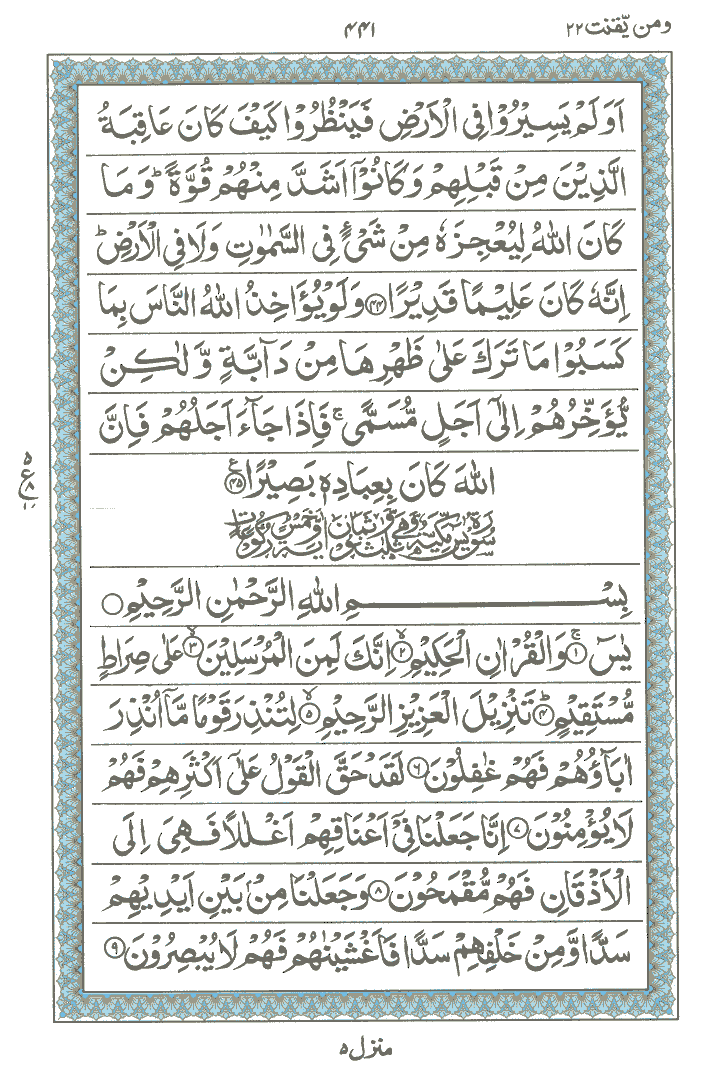 ومن يّقنت ٢٢
٤٤١
اَوَلَمْ يَسِيْرُوْا فِى الْاَرْضِ فَيَنْظُرُوْا كَيْفَ كَانَ عَاقِبَةُ
الَّذِيْنَ مِنْ قَبْلِهِمْ وَكَانُوْۤا اَشَدَّ مِنْهُمْ قُوَّةً ؕ وَمَا
كَانَ اللّٰهُ لِيُعْجِزَهٗ مِنْ شَىْءٍ فِى السَّمٰوٰتِ وَلَا فِى الْاَرْضِ ؕ
اِنَّهٗ كَانَ عَلِيْمًا قَدِيْرًا ﴿۴۴﴾ وَلَوْ يُؤَاخِذُ اللّٰهُ النَّاسَ بِمَا
كَسَبُوْا مَا تَرَكَ عَلٰى ظَهْرِهَا مِنْ دَآبَّةٍ وَّلٰكِنْ
يُّؤَخِّرُهُمْ اِلٰٓى اَجَلٍ مُّسَمًّى ۚ فَاِذَا جَآءَ اَجَلُهُمْ فَاِنَّ
اللّٰهَ كَانَ بِعِبَادِهٖ بَصِيْرًا ﴿۴۵﴾
بِسْمِ اللّٰهِ الرَّحْمٰنِ الرَّحِيْمِ
يٰسٓ ۚ ﴿۱﴾ وَالْقُرْاٰنِ الْحَكِيْمِ ۙ ﴿۲﴾ اِنَّكَ لَمِنَ الْمُرْسَلِيْنَ ۙ ﴿۳﴾ عَلٰى صِرَاطٍ
مُّسْتَقِيْمٍ ؕ ﴿۴﴾ تَنْزِيْلَ الْعَزِيْزِ الرَّحِيْمِ ۙ ﴿۵﴾ لِتُنْذِرَ قَوْمًا مَّاۤ اُنْذِرَ
اٰبَآؤُهُمْ فَهُمْ غٰفِلُوْنَ ﴿۶﴾ لَقَدْ حَقَّ الْقَوْلُ عَلٰٓى اَكْثَرِهِمْ فَهُمْ
لَا يُؤْمِنُوْنَ ﴿۷﴾ اِنَّا جَعَلْنَا فِىْۤ اَعْنَاقِهِمْ اَغْلٰلًا فَهِىَ اِلَى
الْاَذْقَانِ فَهُمْ مُّقْمَحُوْنَ ﴿۸﴾ وَجَعَلْنَا مِنْۢ بَيْنِ اَيْدِيْهِمْ
سَدًّا وَّمِنْ خَلْفِهِمْ سَدًّا فَاَغْشَيْنٰهُمْ فَهُمْ لَا يُبْصِرُوْنَ ﴿۹﴾
منزل ٥